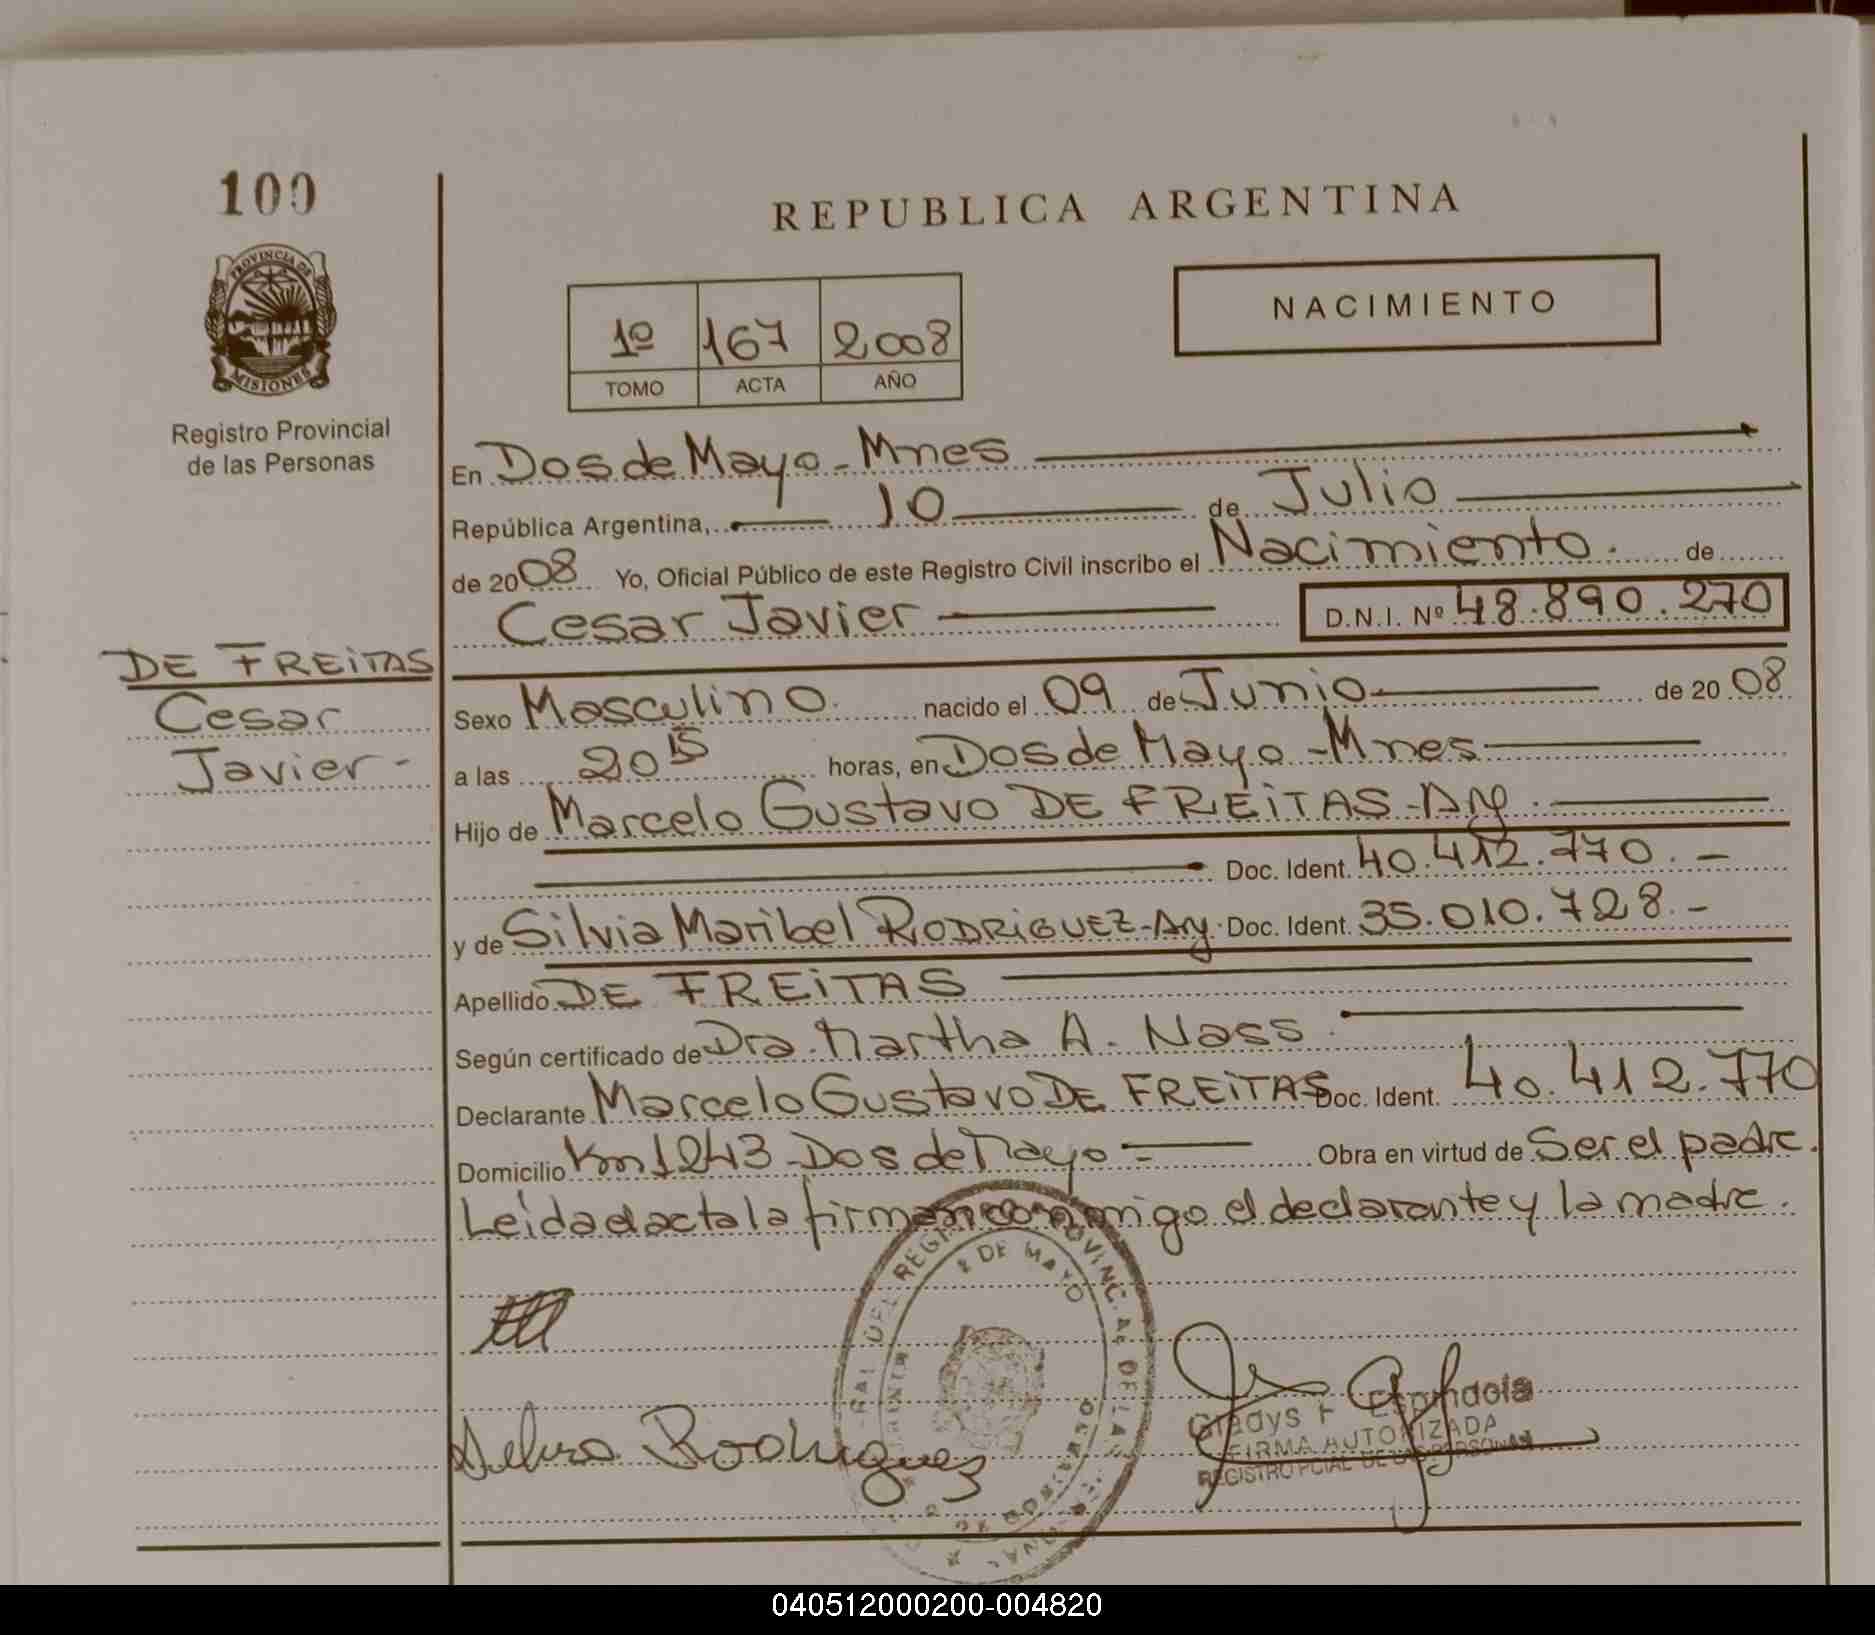 100
REPUBLICA ARGENTINA
PROVINCIA DE
MISIONES
Registro Provincial
de las Personas
NACIMIENTO
1º 167 2008
TOMO ACTA AÑO
En Dos de Mayo - Mnes
República Argentina, 10 de Julio
de 2008 Yo, Oficial Público de este Registro Civil inscribo el Nacimiento. de
Cesar Javier D.N.I. Nº 48.890.270
DE FREITAS
Cesar
Javier -
Sexo Masculino. nacido el 09 de Junio de 2008
a las 20 15 horas, en Dos de Mayo - Mnes
Hijo de Marcelo Gustavo DE FREITAS - Arg.
Doc. Ident. 40.412.770. -
y de Silvia Maribel RODRIGUEZ - Arg. Doc. Ident. 35.010.728. -
Apellido DE FREITAS
Según certificado de Dra. Martha A. Nass.
Declarante Marcelo Gustavo DE FREITAS Doc. Ident. 40.412.770
Domicilio Km 1243 - Dos de Mayo - Obra en virtud de Ser el padre.
Leída el acta la firman conmigo el declarante y la madre.
2 DE MAYO
Rodriguez
Gladys F Espindola
FIRMA AUTORIZADA
REGISTRO PCIAL DE LAS PERSONAS
040512000200-004820